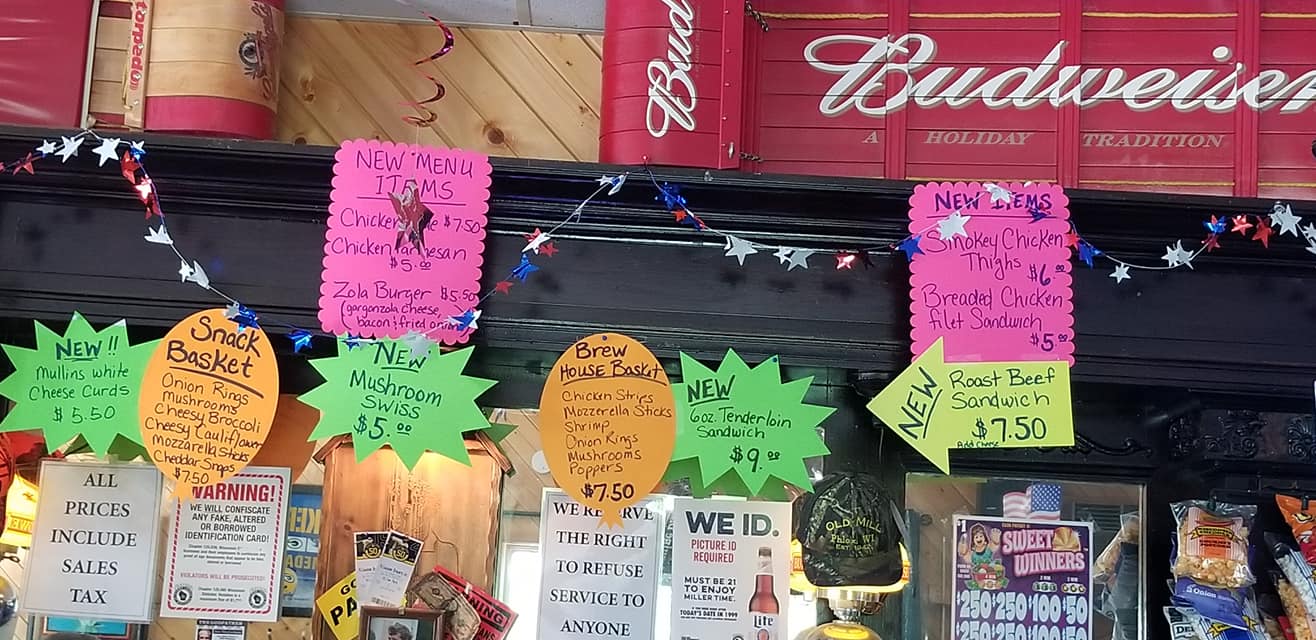 torpedo
Bud
Budweiser
A HOLIDAY TRADITION
NEW MENU
ITEMS
Chicken $7.50
Chicken Parmesan
$5.00
Zola Burger $5.50
(gargonzola cheese,
bacon & fried onion
NEW ITEMS
Smokey Chicken
Thighs
$6.00
Breaded Chicken
filet Sandwich
$5.00
NEW!!
Mullins white
Cheese Curds
$5.50
Snack
Basket
Onion Rings
Mushrooms
Cheesy Broccoli
Cheesy Cauliflower
Mozzarella Sticks
Cheddar Snaps
$7.50
NEW
Mushroom
Swiss
$5.00
Brew
House Basket
Chicken Strips
Mozzerella Sticks
Shrimp
Onion Rings
Mushrooms
Poppers
$7.50
NEW
6oz. Tenderloin
Sandwich
$9.00
NEW
Roast Beef
Sandwich
$7.50
Add Cheese
ALL
PRICES
INCLUDE
SALES
TAX
WARNING!
WE WILL CONFISCATE
ANY FAKE, ALTERED
OR BORROWED
IDENTIFICATION CARD!
VIOLATORS WILL BE PROSECUTED!
WE RESERVE
THE RIGHT
TO REFUSE
SERVICE TO
ANYONE
WE ID.
PICTURE ID
REQUIRED
MUST BE 21
TO ENJOY
MILLER TIME.
TODAY'S DATE IN 1999
Lite
OLD MILL
Phlox, WI.
SWEET
WINNERS
$250 $250 $100 $50
Onion